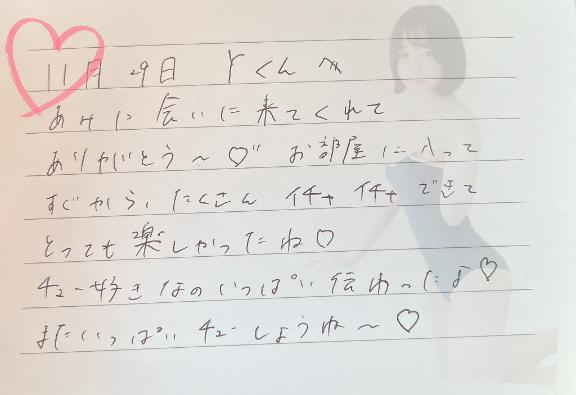 11月29日 Yくんへ
あみに会いに来てくれて
ありがとう〜♡ お部屋に入って
すぐから、たくさん イチャイチャできて
とっても楽しかったね♡
チュー好きなのいっぱい伝わったよ♡
またいっぱいチューしようね〜♡